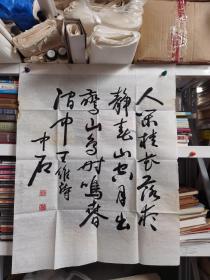 人闲桂花落夜
静春山空月出
惊山鸟时鸣春
涧中 王维诗
中石